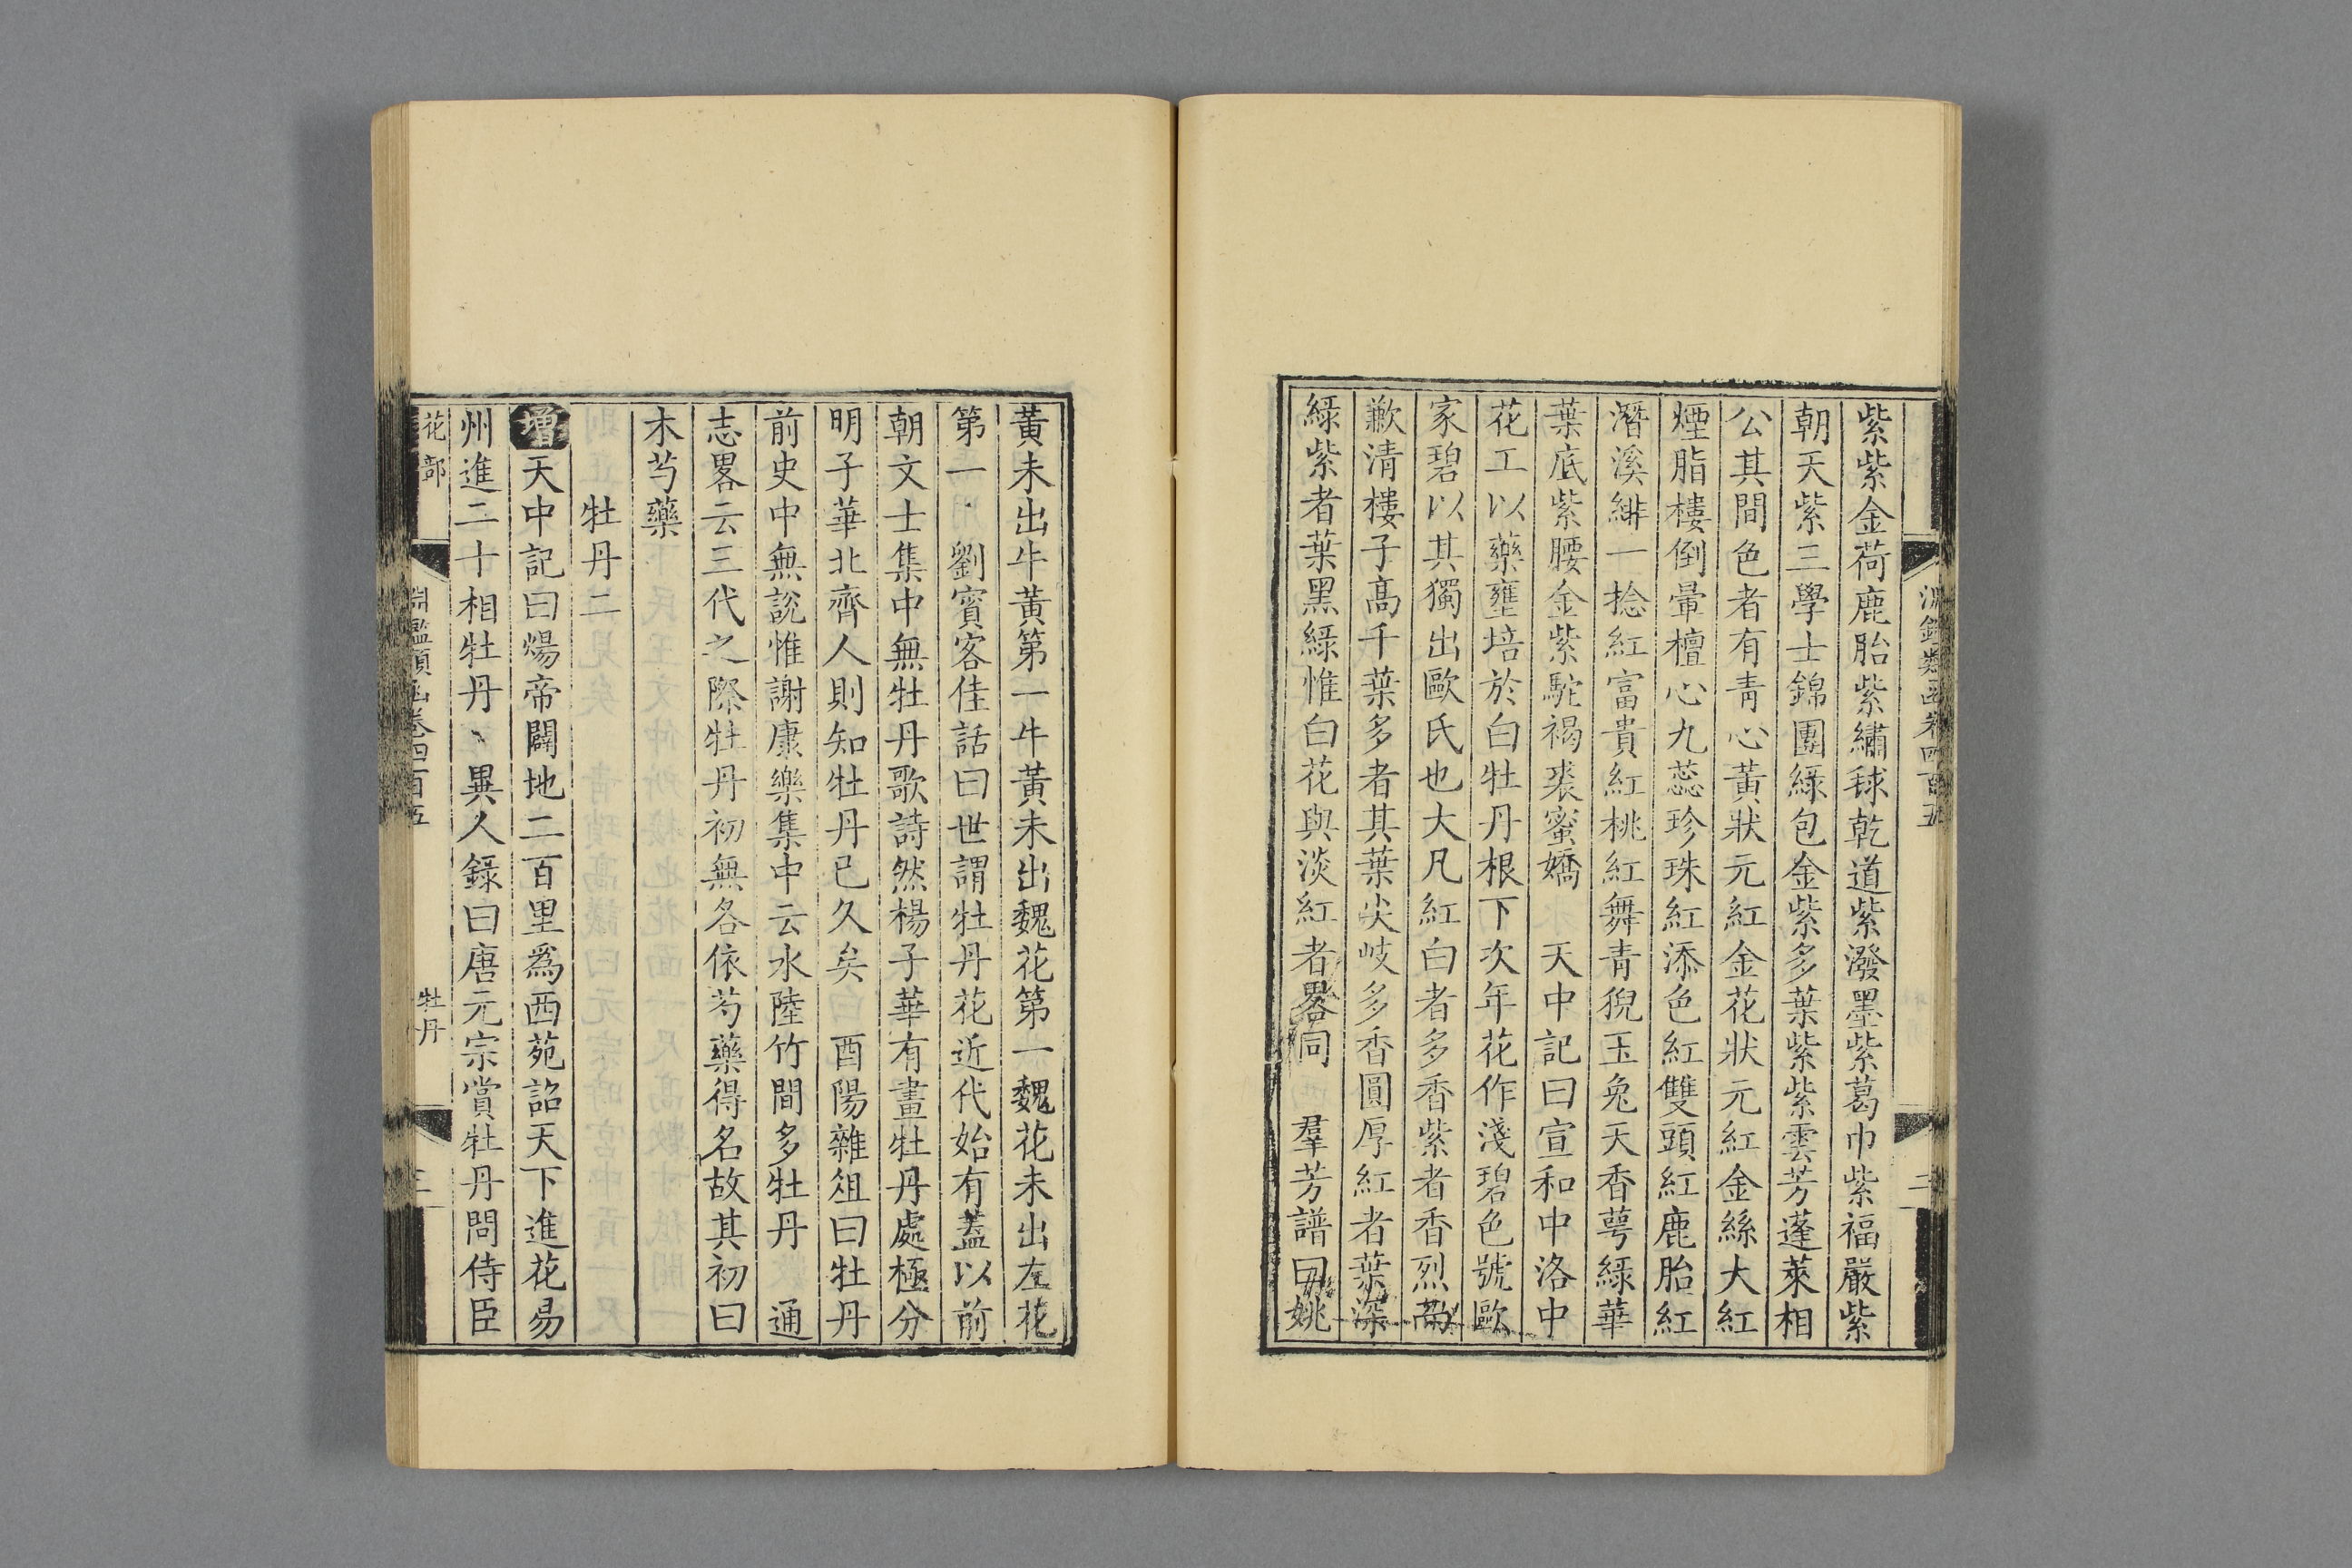 淵鑑類函卷四百五
二
紫紫金荷鹿胎紫繡毬乾道紫潑墨紫葛巾紫福嚴紫
朝天紫三學士錦團綠包金紫多葉紫紫雲芳蓬萊相
公其間色者有青心黃狀元紅金花狀元紅金絲大紅
煙脂樓倒暈檀心九蕊珍珠紅添色紅雙頭紅鹿胎紅
潛溪緋一捻紅富貴紅桃紅舞青猊玉兔天香萼綠華
葉底紫腰金紫駝褐裘蜜嬌　天中記曰宣和中洛中
花工以藥壅培於白牡丹根下次年花作淺碧色號歐
家碧以其獨出歐氏也大凡紅白者多香紫者香烈而
歉清樓子高千葉多者其葉尖岐多香圓厚紅者葉深
綠紫者葉黑綠惟白花與淡紅者畧同　羣芳譜曰姚
黃未出牛黃第一牛黃未出魏花第一魏花未出左花
第一　劉賓客佳話曰世謂牡丹花近代始有蓋以前
朝文士集中無牡丹歌詩然楊子華有畫牡丹處極分
明子華北齊人則知牡丹已久矣　酉陽雜俎曰牡丹
前史中無說惟謝康樂集中云水陸竹間多牡丹　通
志畧云三代之際牡丹初無名依芍藥得名故其初曰
木芍藥
牡丹二
增天中記曰煬帝闢地二百里爲西苑詔天下進花易
州進二十相牡丹　異人錄曰唐元宗賞牡丹問侍臣
花部
淵鑑類函卷四百五
牡丹
三